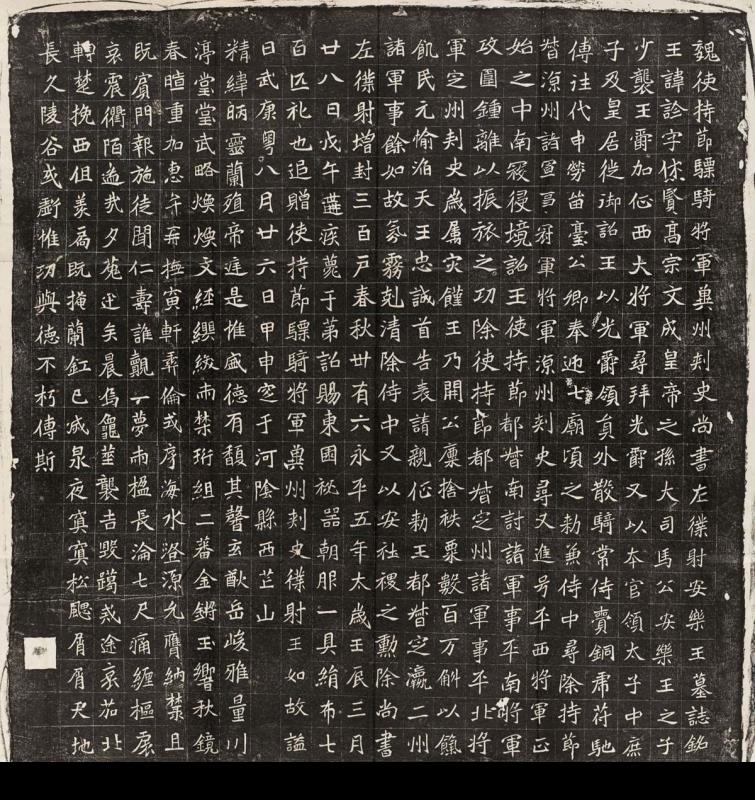 魏使持節驃騎將軍冀州刺史尚書左僕射安樂王墓誌銘
王諱詮字休賢高宗文成皇帝之孫大司馬公安樂王之子
少襲王爵加征西大將軍尋拜光爵又以本官領太子中庶
子及皇居徙御詔王以光爵領員外散騎常侍賷銅虎苻馳
傳往代申勞留臺公卿奉迎七廟頃之勑兼侍中尋除持節
督涼州諸軍事冠軍將軍涼州刾史尋又進号平西將軍正
始之中南寇侵境詔王使持節都督南討諸軍事平南將軍
攻圍鍾離以振旅之功除使持節都督定州諸軍事平北將
軍定州刾史歲屬灾饉王乃開公廩捨秩粟數百万斛以餼
飢民元愉滔天王忠誠首告表請親征勑王都督定瀛二州
諸軍事餘如故氛霧剋清除侍中又以安社稷之勳除尚書
左僕射增封三百戶春秋卅有六永平五年太歲壬辰三月
廿八日戊午遘疾薨于第詔賜東園祕器朝服一具絹布七
百匹礼也追贈使持節驃騎將軍冀州刾史僕射王如故謚
曰武康粵八月廿六日甲申窆于河陰縣西芒山
精緯昞靈蘭殖帝逞是惟盛德有馥其聲玄猷岳峻雅量川
渟堂堂武略煥煥文經纓紱兩禁珩組二蕃金鏘玉響秋鏡
春暄重加惠弁再撫寅軒彝倫式序海水澄源允膺納禁且
既賓門報施徒聞仁壽誰覿一夢兩楹長淪七尺痛纏樞扆
哀震衢陌遙哉夕菟迅矣晨烏龜莁襲吉毀躅戒途哀茄北
轉楚挽西徂羨扃既掩蘭釭已滅泉夜寘寘松颸屑屑天地
長久陵谷或虧惟功與德不朽傳斯